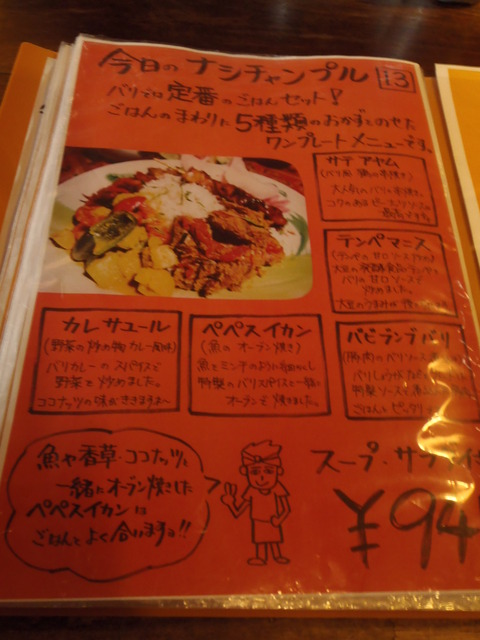 今日のナシチャンプル 13
バリでは定番のごはんセット!
ごはんのまわりに5種類のおかずとのせた
ワンプレートメニューです。
サテ アヤム
(バリ風 鶏の串焼き)
大人気のバリの串焼き。
コクのあるピーナツソースが
最高です。
テンペマニス
(テンペの甘口ソースアエ)
大豆の発酵食品テンペを
バリの甘口ソースで
炒めました。
大豆のうまみが
カレサユール
(野菜の炒め物カレー風味)
バリカレーのスパイスで
野菜と炒めました。
ココナッツの味がききますよ
ペペスイカン
(魚のオーブン焼き)
魚とミンチのように
特製のバリスパイスと一緒に
オーブンで焼きました。
バビランプバリ
(豚肉のバリソース
特製ソースで
ごはんとピッタリ
魚や香草・ココナッツと
一緒にオーブン焼きした
ペペスイカンは
ごはんとよく合いますョ!!
スープ・サラダ付
¥94